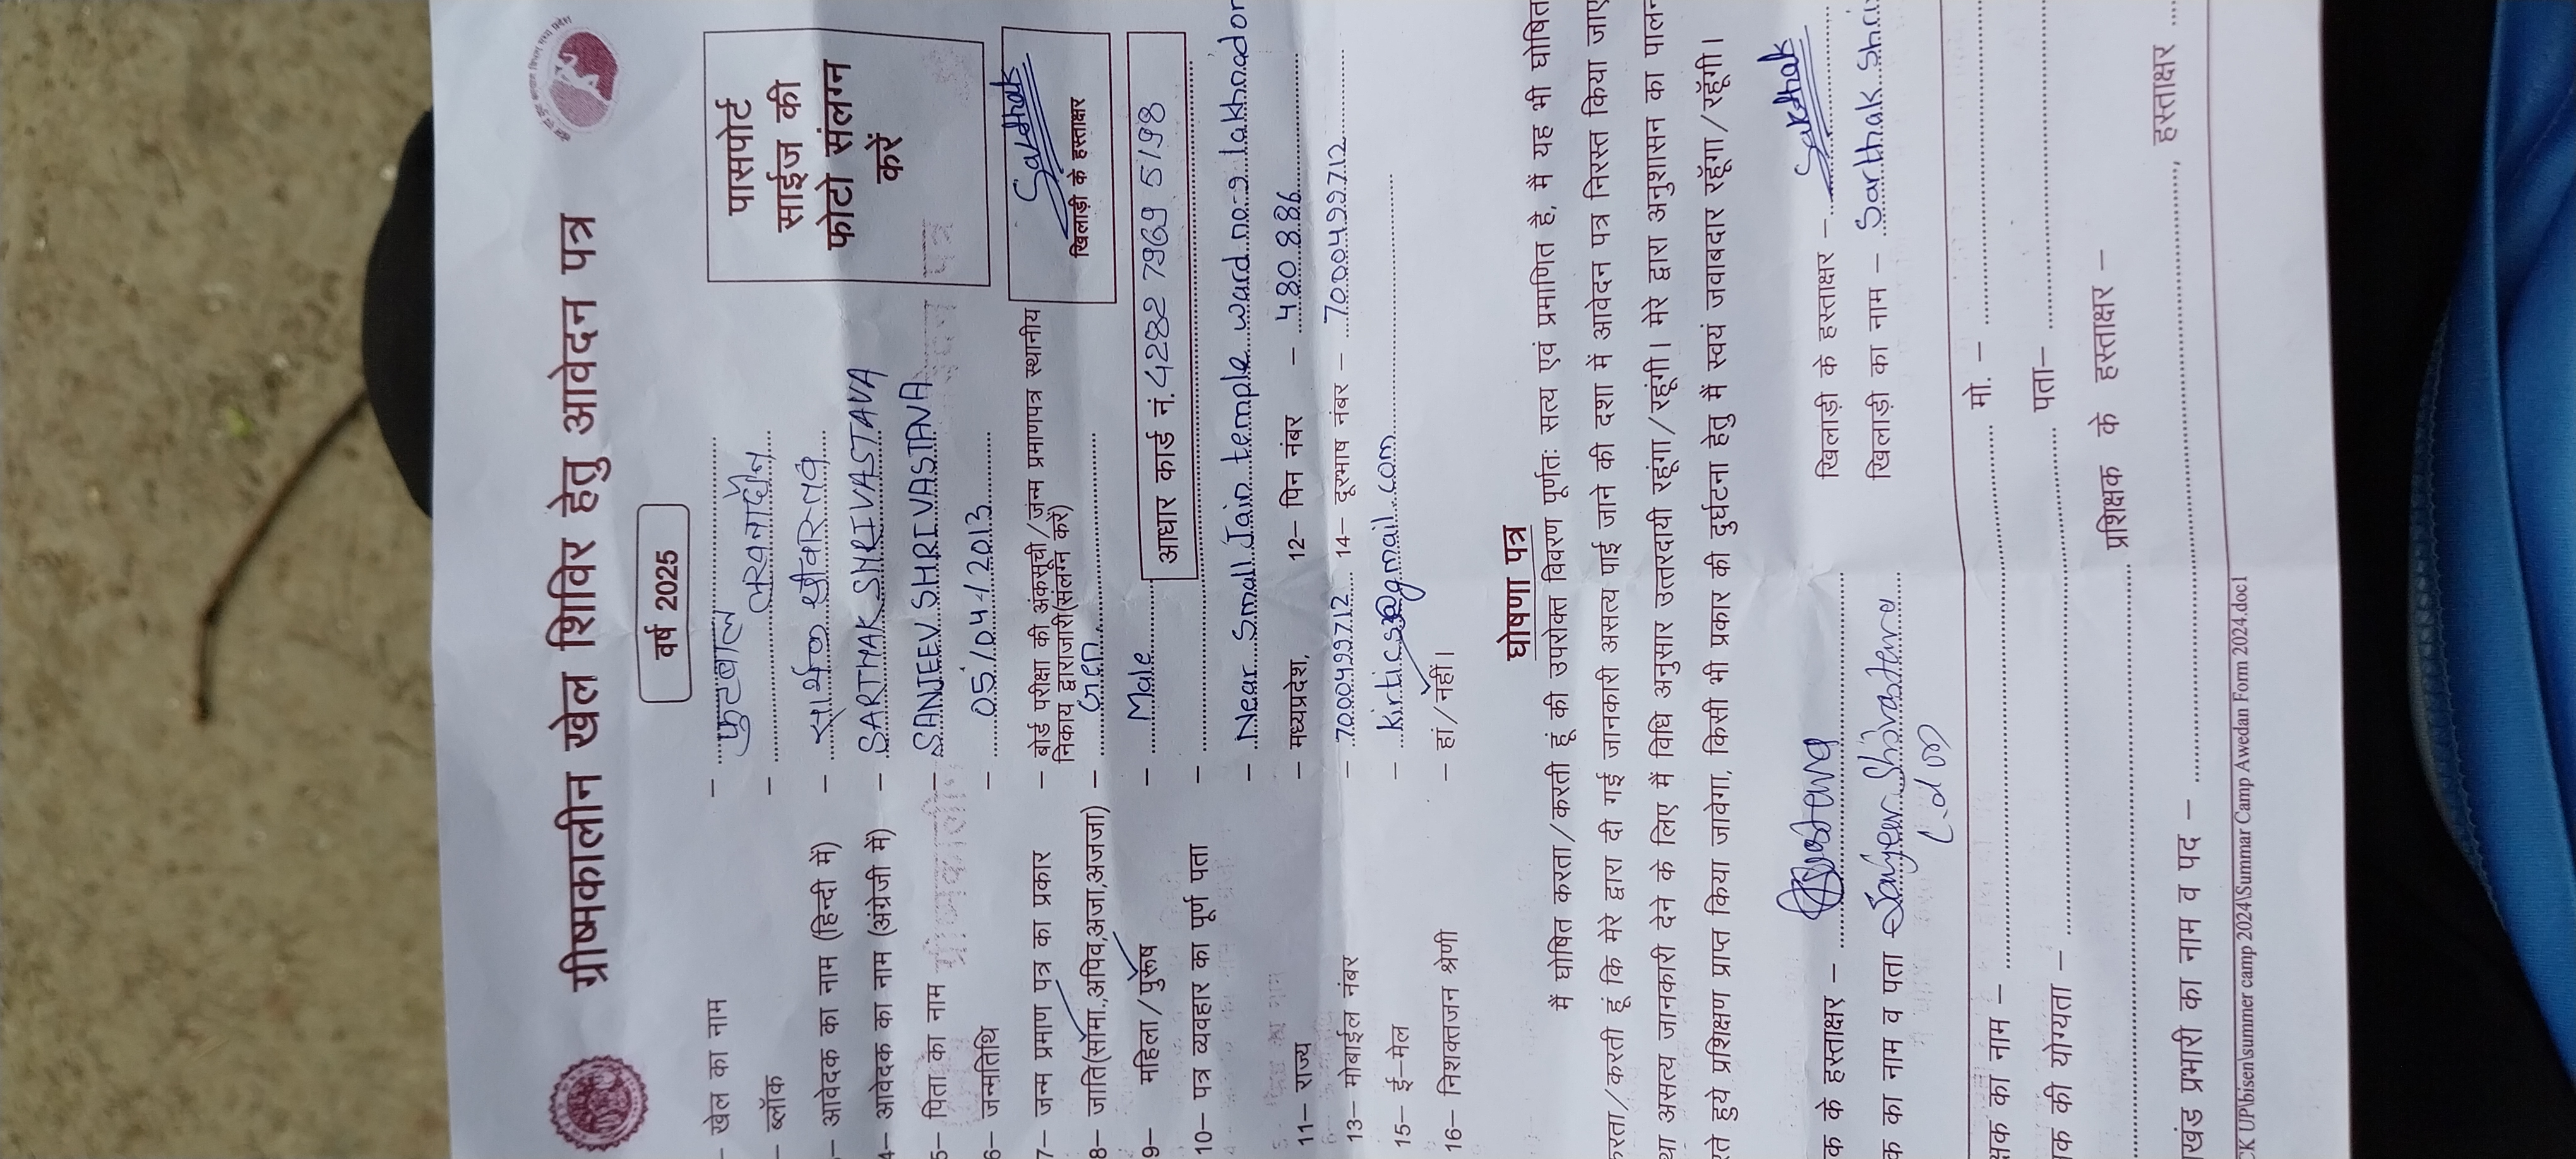 ग्रीष्मकालीन खेल शिविर हेतु आवेदन पत्र
वर्ष 2025
पासपोर्ट
साईज की
फोटो संलग्न
करें
– खेल का नाम – फुटबाल
– ब्लॉक – लखनादौन
– आवेदक का नाम (हिन्दी में) – सार्थक श्रीवास्तव
4– आवेदक का नाम (अंग्रेजी में) – SARTHAK SHRIVASTAVA
5– पिता का नाम – SANJEEV SHRIVASTAVA
6– जन्मतिथि – 05/04/2013
Sarthak
खिलाड़ी के हस्ताक्षर
7– जन्म प्रमाण पत्र का प्रकार – बोर्ड परीक्षा की अंकसूची/जन्म प्रमाणपत्र स्थानीय
निकाय द्वाराजारी(सलंग्न करें)
8– जाति(सामा.,अपिव,अजा,अजजा) – Gen
9– महिला/पुरूष – Male
आधार कार्ड नं. 4282 7969 5198
10– पत्र व्यवहार का पूर्ण पता –
– Near Small Jain temple ward no-9 lakhnadon
11– राज्य – मध्यप्रदेश, 12– पिन नंबर – 480886
13– मोबाईल नंबर – 7000499712 14– दूरभाष नंबर – 7000499712
15– ई-मेल – @gmail.com
16– निशक्तजन श्रेणी – हां/नहीं।
घोषणा पत्र
मैं घोषित करता/करती हूं की उपरोक्त विवरण पूर्णतः सत्य एवं प्रमाणित है, मैं यह भी घोषित
करता/करती हूं कि मेरे द्वारा दी गई जानकारी असत्य पाई जाने की दशा में आवेदन पत्र निरस्त किया जाए
असत्य जानकारी देने के लिए मैं विधि अनुसार उत्तरदायी रहूंगा/रहूंगी। मेरे द्वारा अनुशासन का पालन
हुये प्रशिक्षण प्राप्त किया जावेगा, किसी भी प्रकार की दुर्घटना हेतु मैं स्वयं जवाबदार रहूंगा/रहूंगी।
के हस्ताक्षर – खिलाड़ी के हस्ताक्षर – Sarthak
का नाम व पता Sanjeev Shrivastava खिलाड़ी का नाम – Sarthak Shri
का नाम – मो. –
की योग्यता – पता–
प्रशिक्षक के हस्ताक्षर –
खंड प्रभारी का नाम व पद – , हस्ताक्षर
CK UP\bisen\summer camp 2024\Summar Camp Awedan Form 2024.doc1